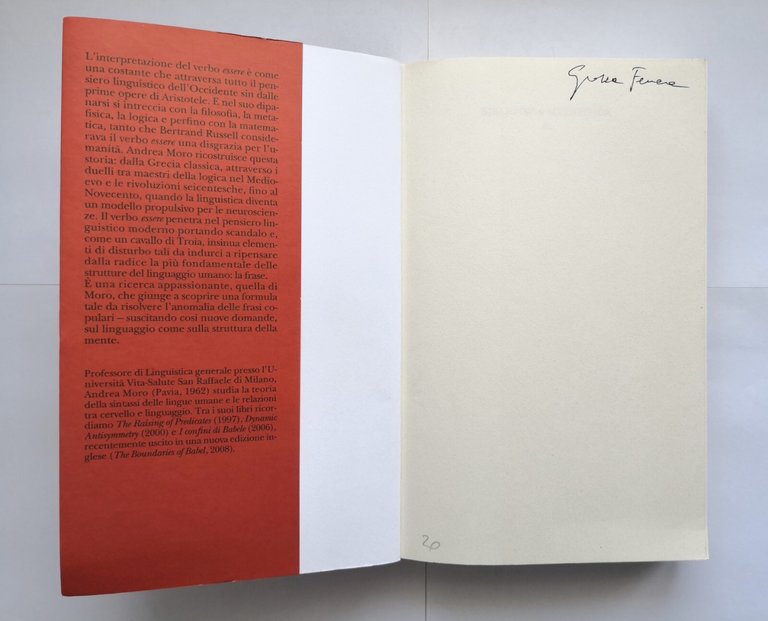 L'interpretazione del verbo essere è come
una costante che attraversa tutto il pen-
siero linguistico dell'Occidente sin dalle
prime opere di Aristotele. E nel suo dipa-
narsi si intreccia con la filosofia, la meta-
fisica, la logica e perfino con la matema-
tica, tanto che Bertrand Russell conside-
rava il verbo essere una disgrazia per l'u-
manità. Andrea Moro ricostruisce questa
storia: dalla Grecia classica, attraverso i
duelli tra maestri della logica nel Medio-
evo e le rivoluzioni seicentesche, fino al
Novecento, quando la linguistica diventa
un modello propulsivo per le neuroscien-
ze. Il verbo essere penetra nel pensiero lin-
guistico moderno portando scandalo e,
come un cavallo di Troia, insinua elemen-
ti di disturbo tali da indurci a ripensare
dalla radice la più fondamentale delle
strutture del linguaggio umano: la frase.
È una ricerca appassionante, quella di
Moro, che giunge a scoprire una formula
tale da risolvere l'anomalia delle frasi co-
pulari – suscitando così nuove domande,
sul linguaggio come sulla struttura della
mente.
Professore di Linguistica generale presso l'U-
niversità Vita-Salute San Raffaele di Milano,
Andrea Moro (Pavia, 1962) studia la teoria
della sintassi delle lingue umane e le relazioni
tra cervello e linguaggio. Tra i suoi libri ricor-
diamo The Raising of Predicates (1997), Dynamic
Antisymmetry (2000) e I confini di Babele (2006),
recentemente uscito in una nuova edizione in-
glese (The Boundaries of Babel, 2008).
20